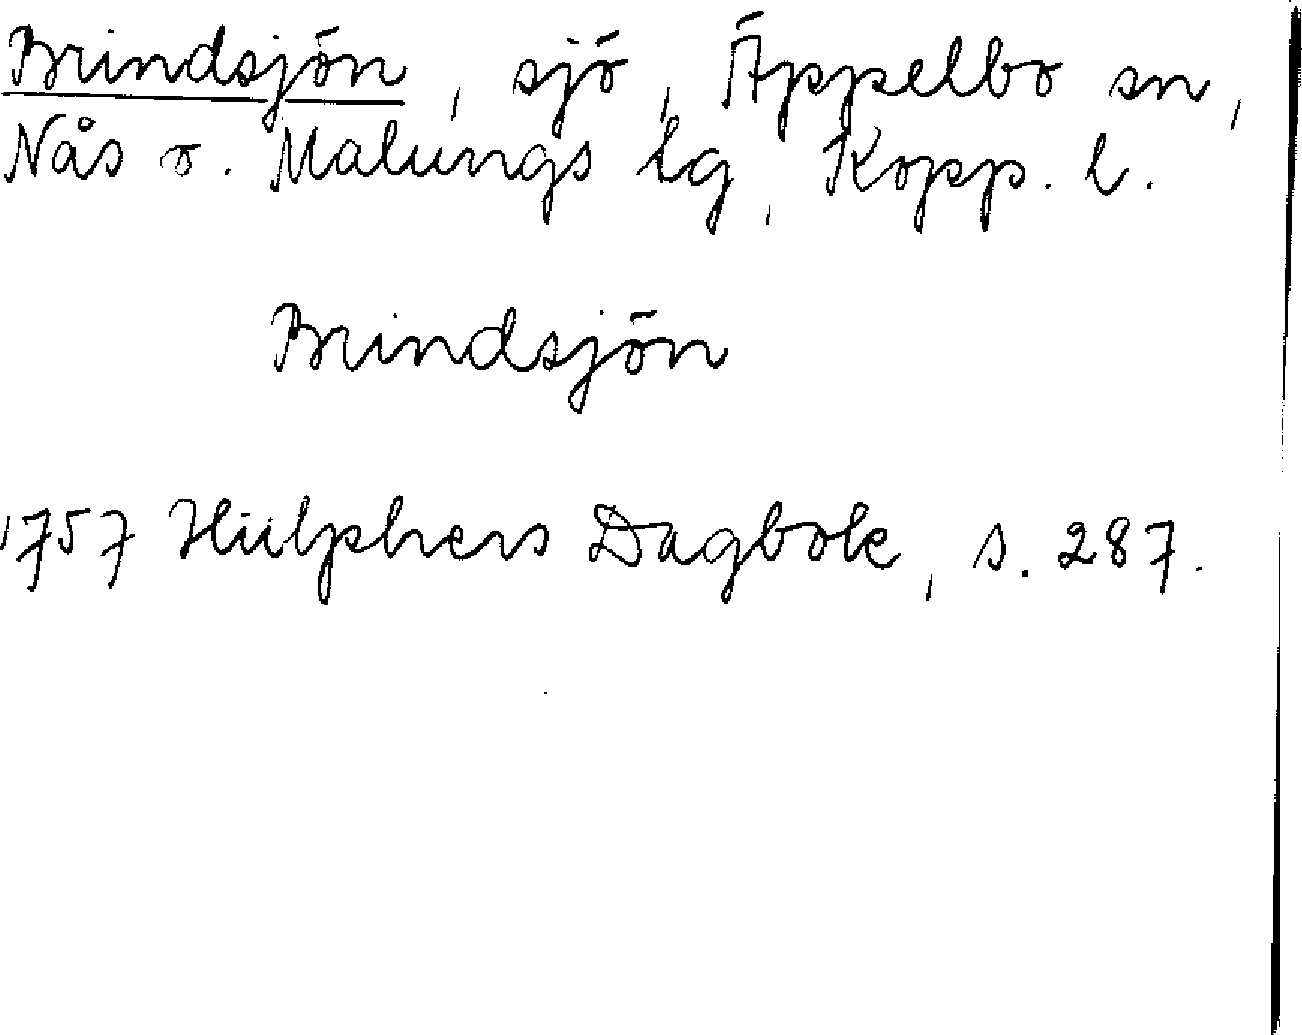 Brindsjön, sjö, Äppelbo sn,
Nås o. Malungs lg, Kopp. l.
Brindsjön
1757 Hülphers Dagbok, s. 287.